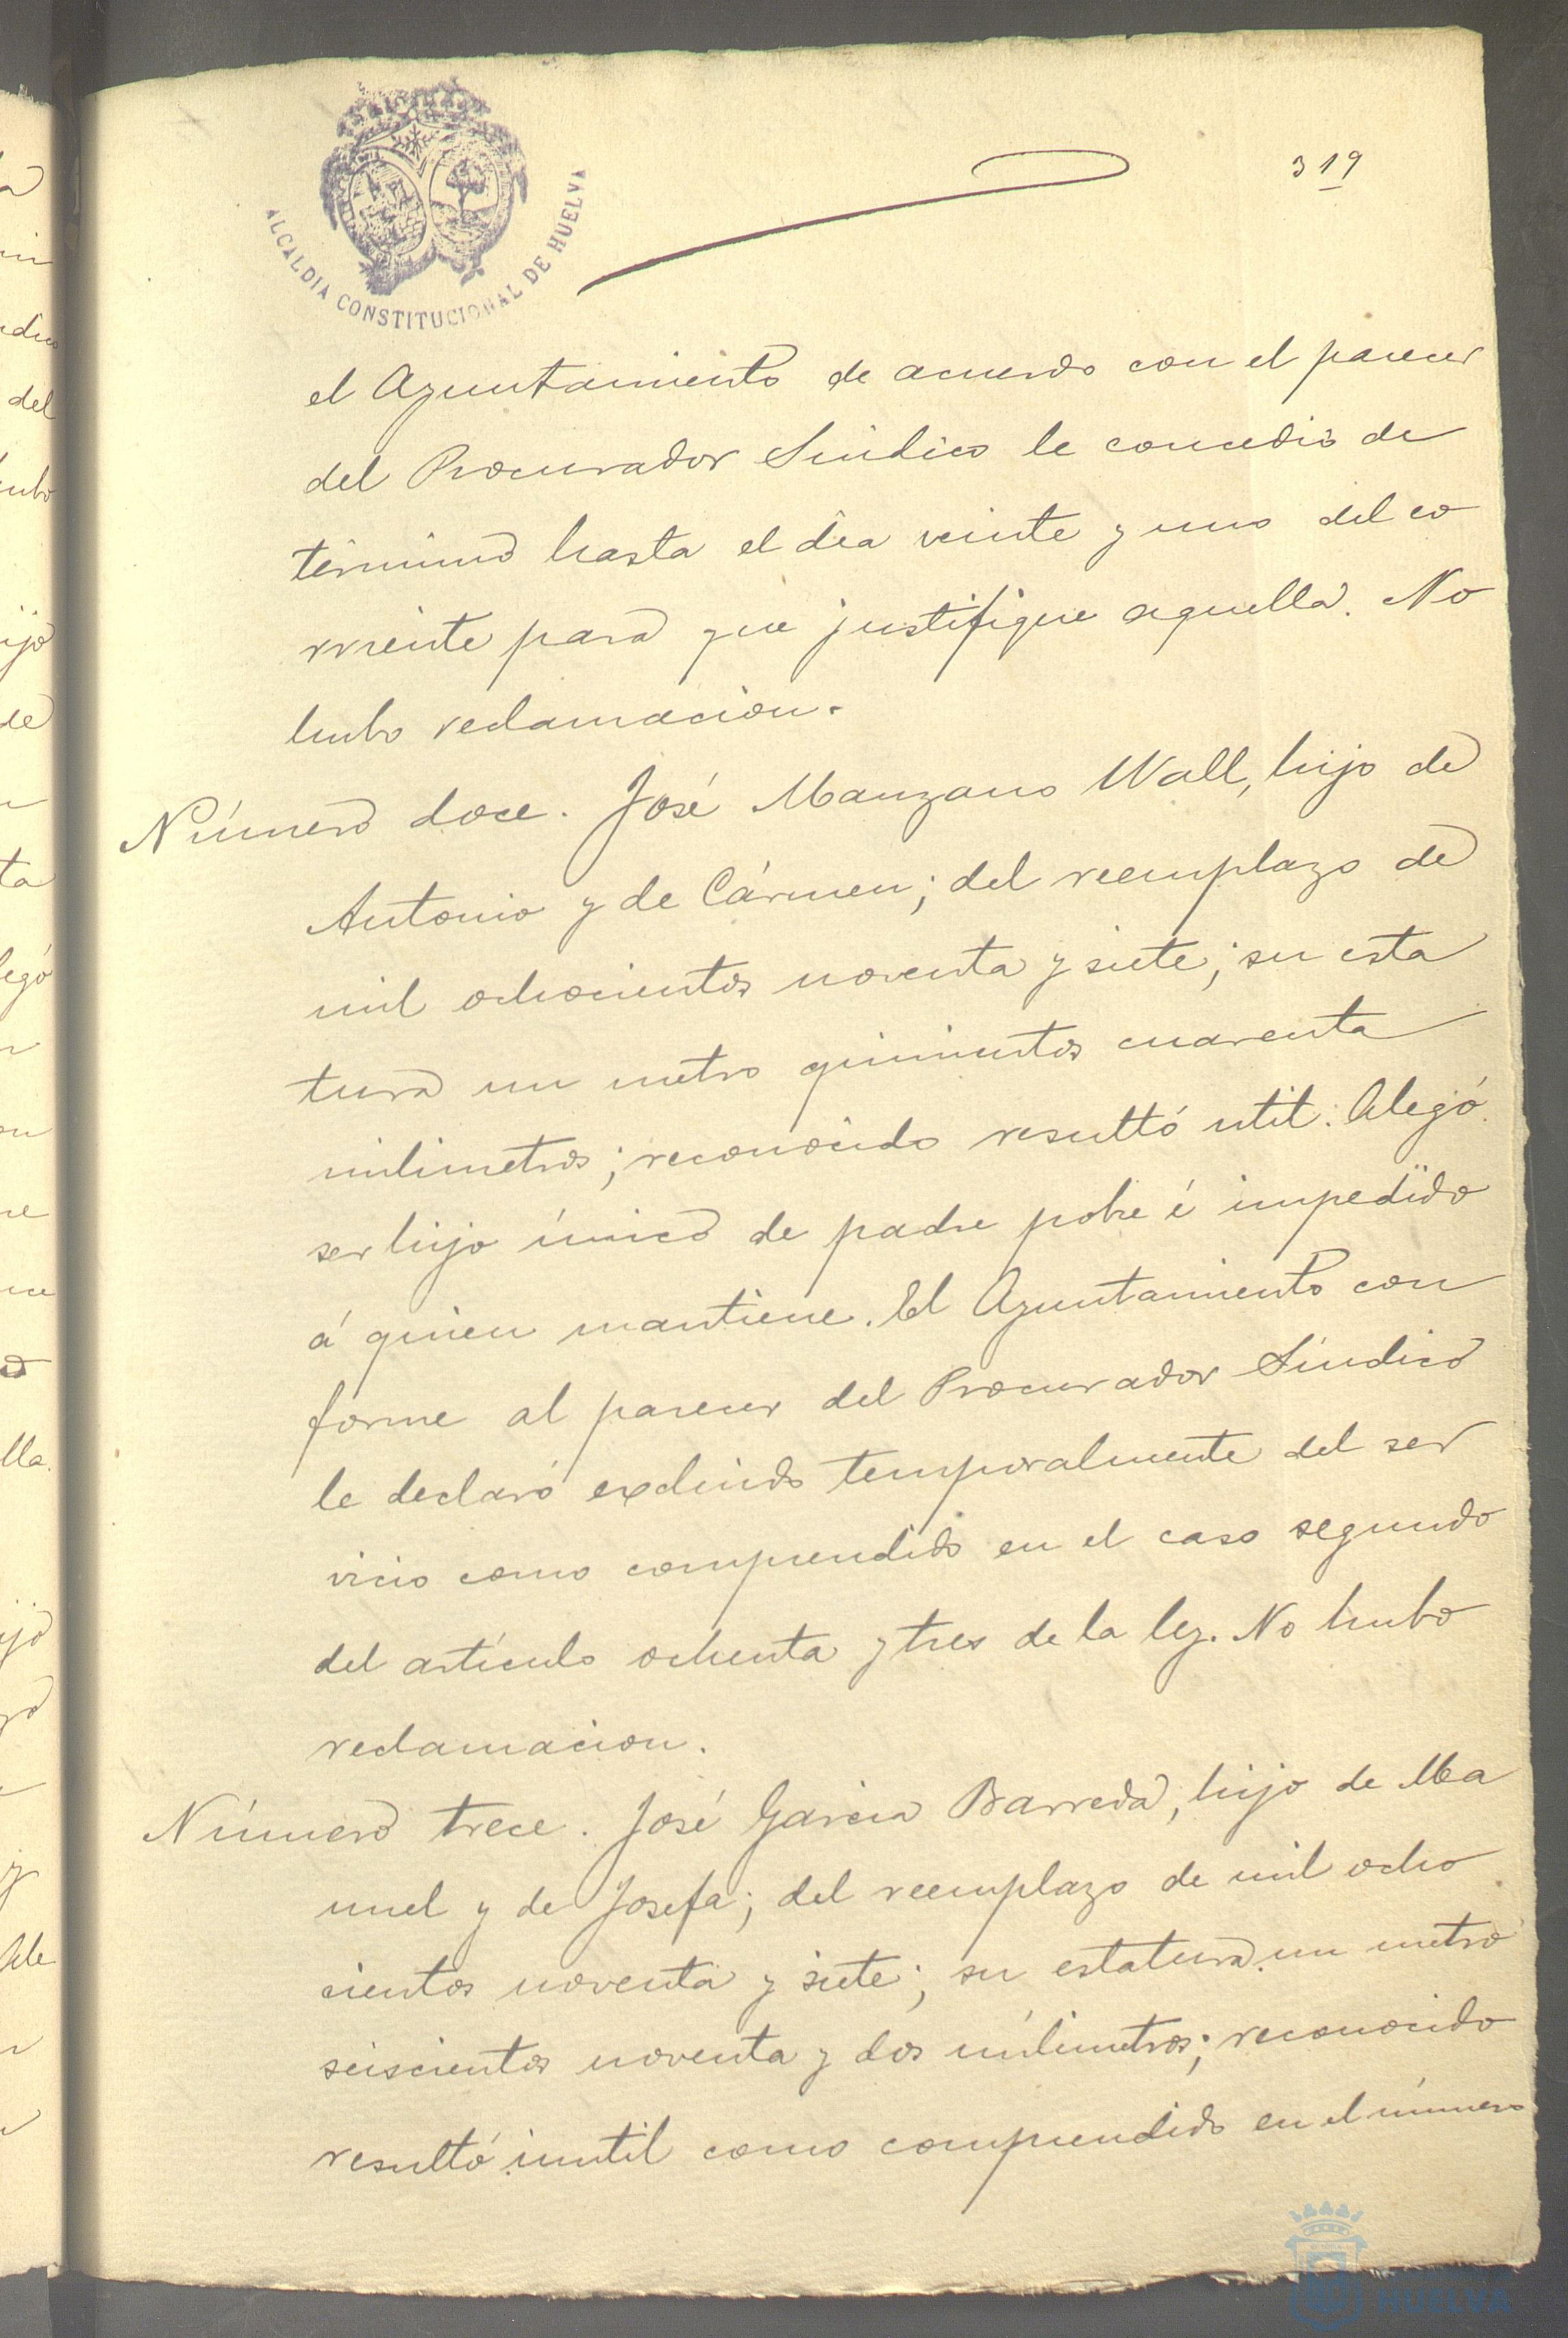 ALCALDIA CONSTITUCIONAL DE HUELVA
319
el Ayuntamiento de acuerdo con el parecer
del Procurador Sindico le concedió de
término hasta el dia veinte y uno del co
rriente para que justifique aquella. No
hubo reclamacion.
Número doce. José Manzano Wall, hijo de
Antonio y de Cármen; del reemplazo de
mil ochocientos noventa y siete; su esta
tura un metro quinientos cuarenta
milimetros; reconocido resultó util. Alegó
ser hijo único de padre pobre é impedido
á quien mantiene. El Ayuntamiento con
forme al parecer del Procurador Síndico
le declaró excluido temporalmente del ser
vicio como comprendido en el caso segundo
del artículo ochenta y tres de la ley. No hubo
reclamacion.
Número trece. José Garcia Barreda, hijo de Ma
nuel y de Josefa; del reemplazo de mil ocho
cientos noventa y siete; su estatura un metro
seiscientos noventa y dos milimetros; reconocido
resultó inutil como comprendido en el número
HUELVA